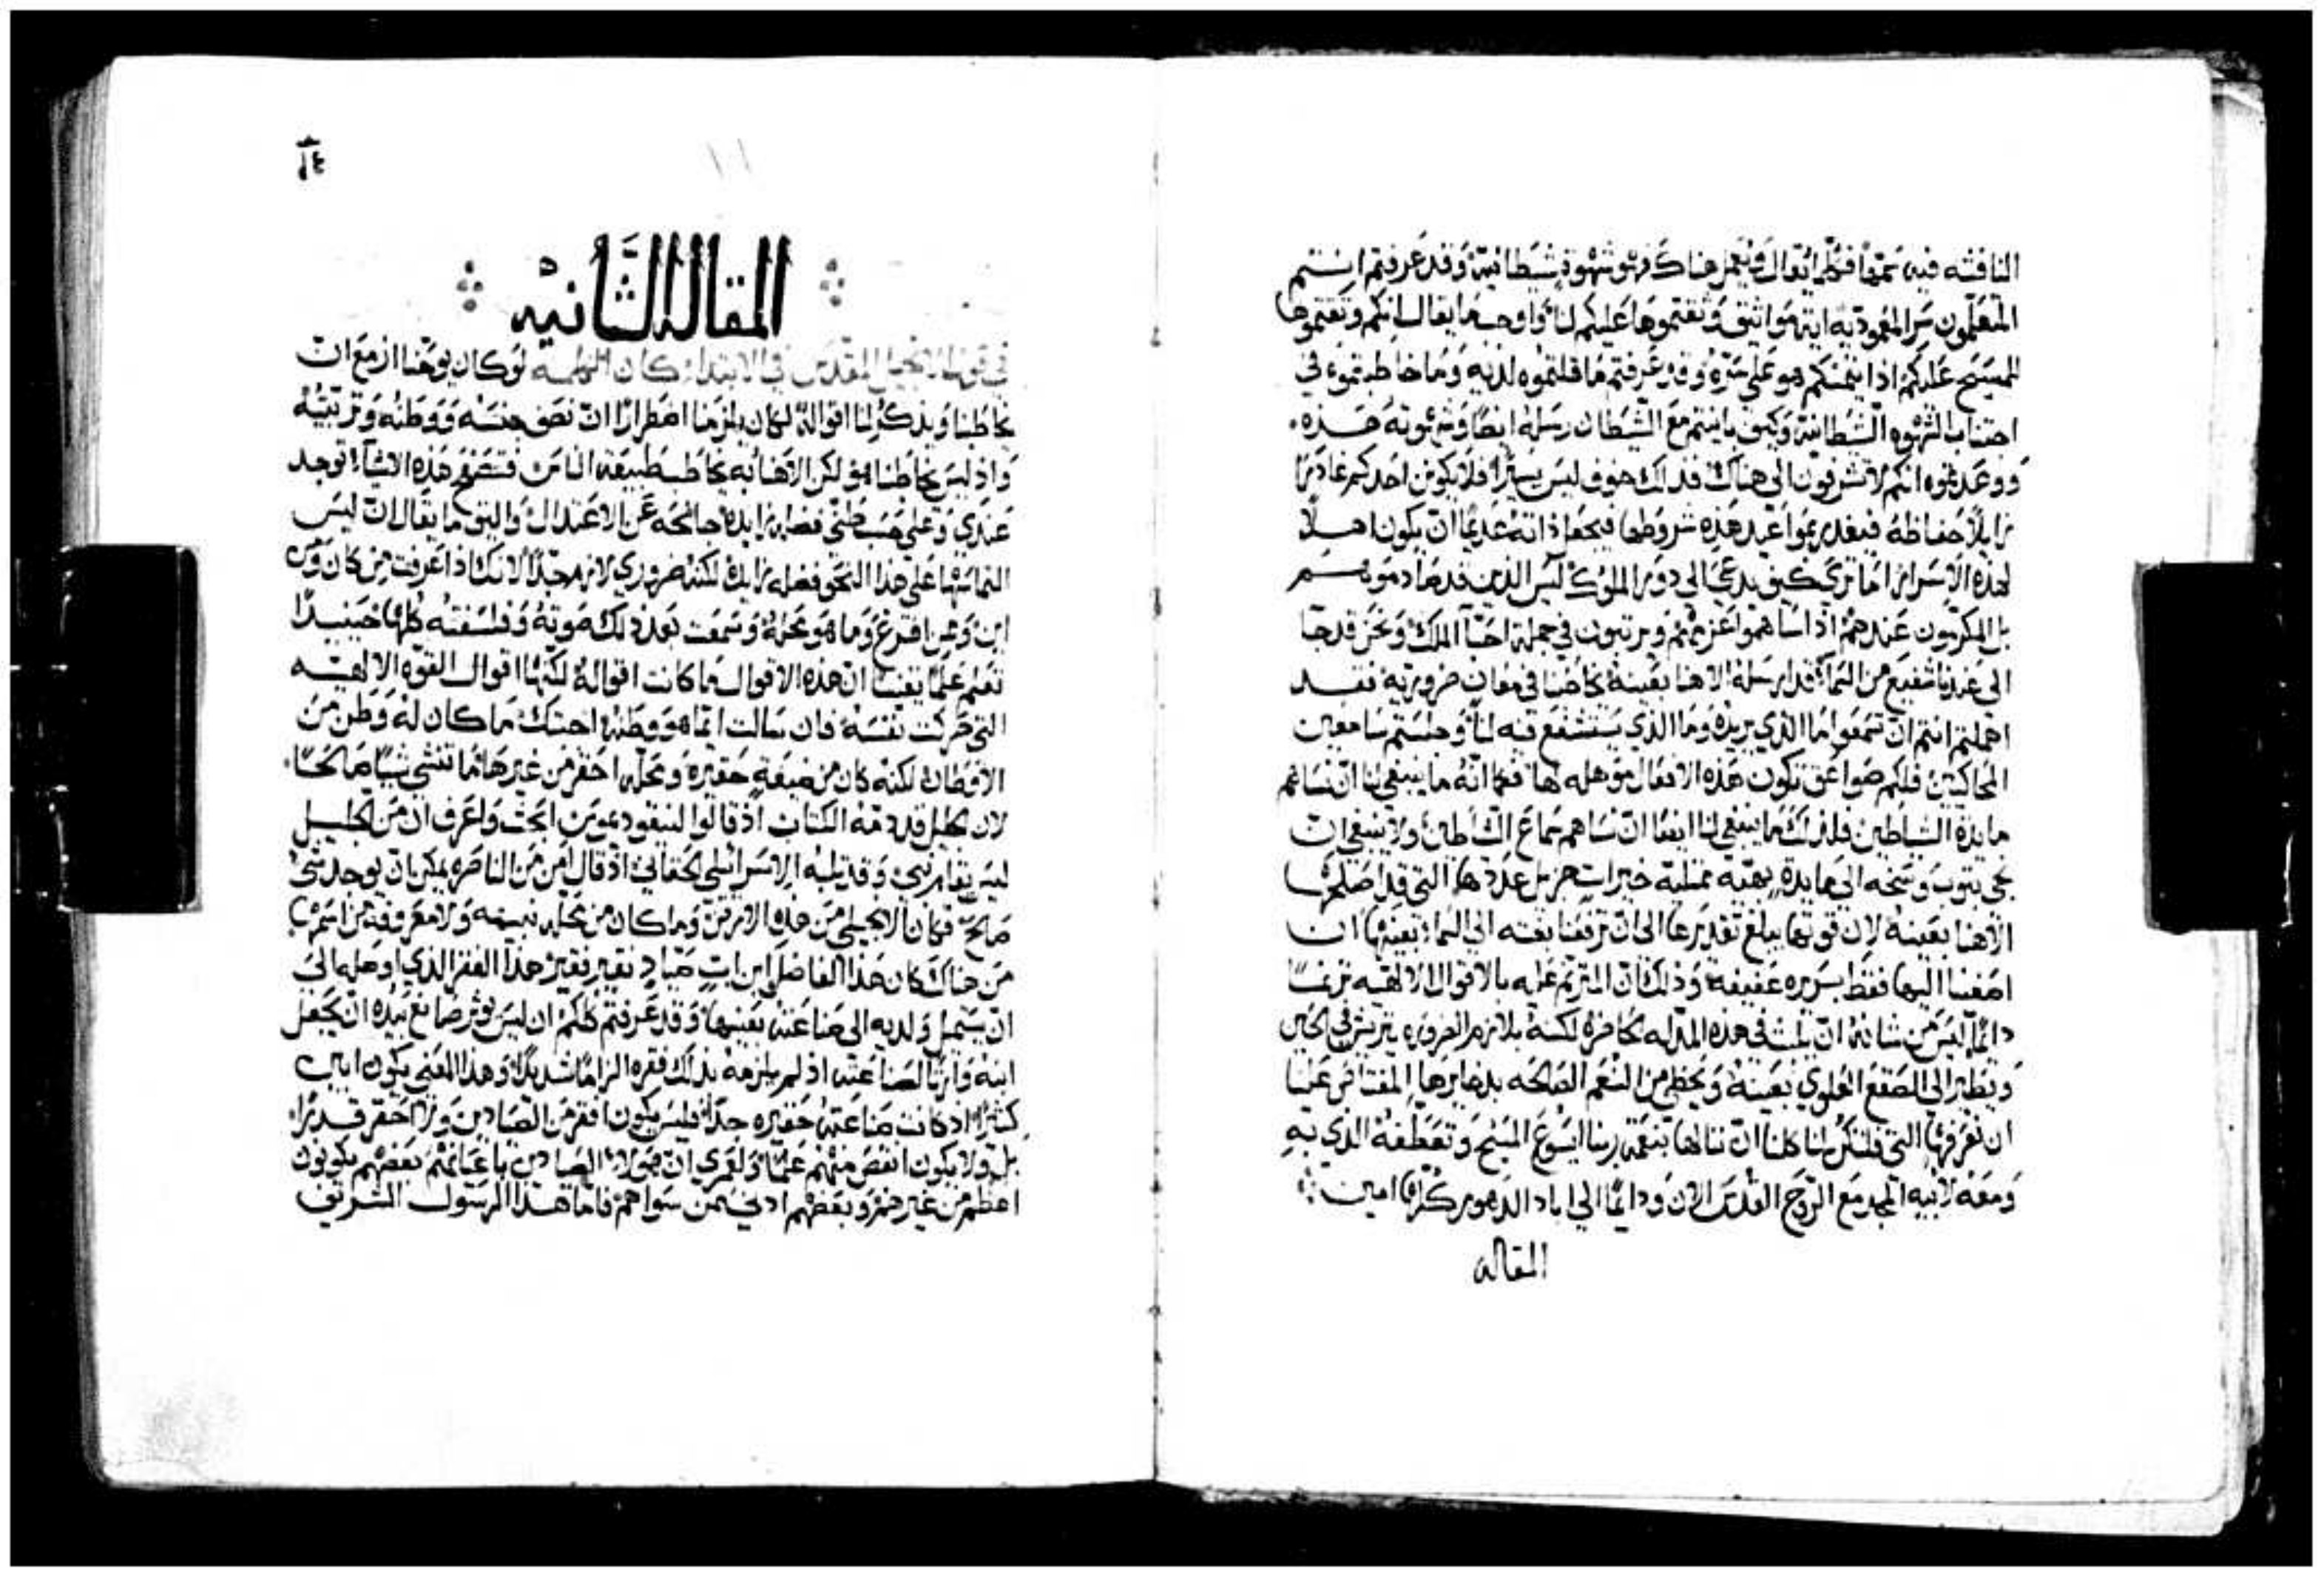 النافثه فيه سمها فكلما يقال ويعمل هناك فهو شهوة شيطانية وقد عرفتم انتم
المتعلمون سر المعودية اية مواثيق وثقتموها عليكم لنا واوجب ما يقال انكم وثقتموها
للمسيح عليكم اذ ايتمنكم هو على سره وقد عرفتم ما قلتموه لديه وما خاطبتموه في
اجتناب الشهوه الشيطانية وكيف باينتم مع الشيطان رسله ايضا وشهوته هذه.
ووعدتموه انكم لا تشرفون الى هناك فذلك خوف ليس يسيرا فلا يكونن احدكم غادرا
زايلا حفاظه فيغدر بمواعيد هذه شروطها فيجعل ذاته عديما ان يكون اهلا
لهذه الاسرار اما ترى كيف يدعى الى دور الملوك ليس الذين قد صادموهم
بل المكرمون عندهم اذ اساهموا عزيمتهم ويرتبون في جملة احبآ الملك ونحن قد جا
الى عندنا شفيع من السمآ قد ارسله الاهنا بعينه يخاطبنا في معان ضرورية فقد
اهملتم انتم ان تسمعوا ما الذي يريده وما الذي يستشفع فيه لنا وجلستم سامعين
المحاكيين فلكم صواعق تكون هذه الافعال موهله لها فكما انه ما ينبغي لنا ان نساهم
مايدة الشياطين فلذلك ما ينبغي لنا ايضا ان نساهم سماع الشياطين ولا ينبغي ان
نجي بثوب وسخه الى مايدة بهية ممتلية خيرات جزيل عددها التي قد اصلحها
الاهنا بعينه لان قوتها يبلغ تقديرها الى ان ترفعنا بغته الى السماء بعينها ان
اصغينا اليها فقط بسريره عفيفة وذلك ان المترنم عليه بالاقوال الالهيه ترنما
دائما ليس من شانه ان يلبث في هذه المذله الحاضرة لكنه يلازم الضروره يتريش في الحين
ويطير الى الصقع العلوي بعينه ويحظى من النعم الصالحه بذخايرها المعتاص علينا
ان نعرفها التي فلتكن لنا كلنا ان ننالها بنعمة ربنا ايسوع المسيح وتعطفه الذي به
ومعه لابيه المجد مع الروح القدس الان ودايما الى اباد الدهور كلها امين
المقاله
١٤
المقاله الثانيه
في قول الانجيل المقدس في الابتداء كان الكلمة لو كان يوحنا ازمع ان
يخاطبنا ويذكر لنا اقواله لكان يلزمنا اضطرارا ان نصف جنسه ووطنه وتربيته
واذ ليس يخاطبنا هو لكن الاهنا به يخاطب طبيعة الناس فتصفح هذه الاشيآ توجد
عندي وعلى حسب ظني فضله زايده جانحه عن الاعتدال واليق ما يقال ان ليس
التماسها على هذا النحو فضله زايده لكنه ضروري لازم جدا لانك اذا عرفت من كان ومن
اين وممن افترع وما هو نحوه وسمعت بعد ذلك صوته وفلسفته كلها حينيذا
تعلم علما يقينا ان هذه الاقوال ما كانت اقواله لكنها اقوال القوه الالهيه
التي حركت نفسه فان سالت اتما هو وطنه اجبتك ما كان له وطن من
الاوطان لكنه كان من ضيعة حقيره ومحله احقر من غيرها ما تنشي شيا صالحا.
لان الجليل قد ذمه الكتاب اذ قالوا لنيقوديموس ابحث واعرف ان من الجليل
ليس يقام نبي وقد ثلبه الاسرائيلي الحقاني اذ قال امن من الناصره يمكن ان يوجد شي
صالح فكان الانجيلي من هذه الارض وما كان من محله نبيهه ولا معروفه من اسمها
من هناك كان هذا الفاضل ابن اب صياد فقير فقير هذا الفقر الذي اوصله الى
ان يستميل ولديه الى صناعته بعينها وقد عرفتم كلكم ان ليس يوثر صانع بيده ان يجعل
ابنه وارثا لصناعته اذ لم يلزمه بذلك فقره الزاما شديدا وهذا المعنى يكون ابين
كثيرا اذ كانت صناعته حقيره جدا فليس يكون افقر من الصيادين ولا احقر قدرا.
بل ولا يكون انقص منهم علما ولعمري ان هولاء الصيادين باعيانهم بعضهم يكونون
اعظم من غيرهم وبعضهم ادنى من سواهم فاما هذا الرسول الشريف